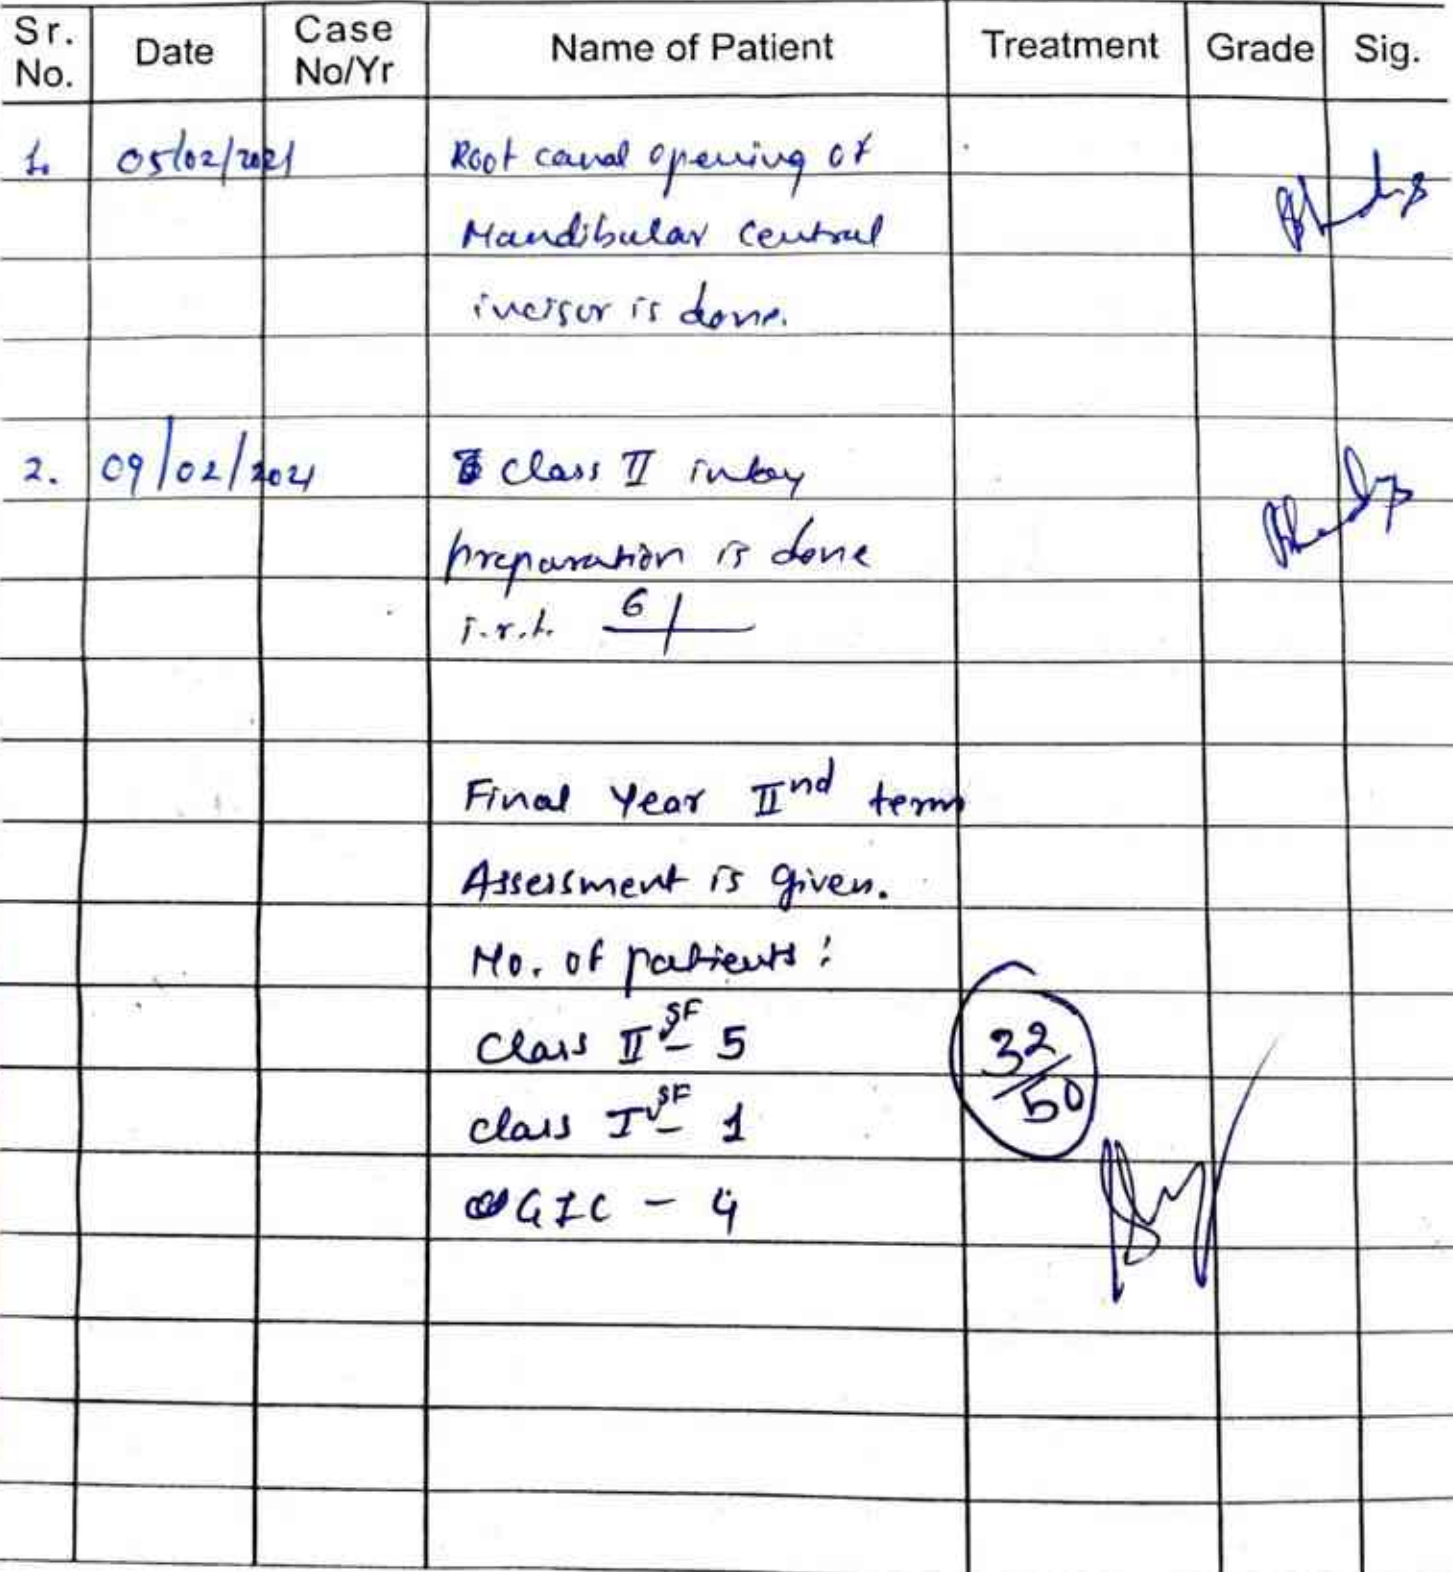 Sr. No. Date Case No/Yr Name of Patient Treatment Grade Sig.
1. 05/02/2021 Root canal opening of
Mandibular central
incisor is done.
2. 09/02/2021 Class II inlay
preparation is done
i.r.t. 6/
Final Year IInd term
Assessment is given.
No. of patients:
Class II SF - 5
class I SF - 1
GIC - 4
32/50